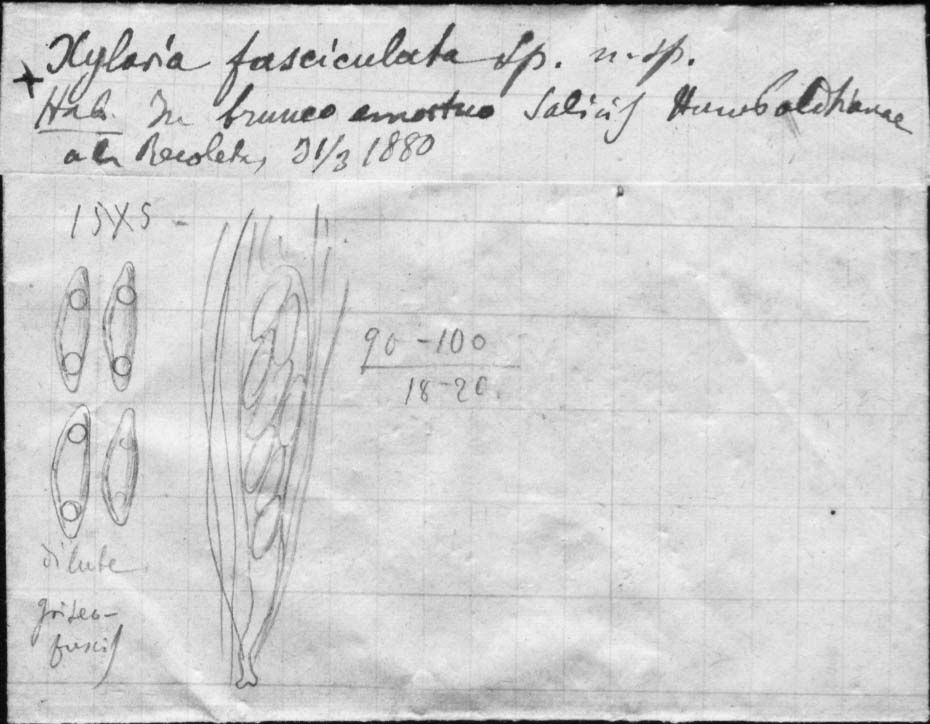 Xylaria fasciculata Sp. n. sp.
+ Hab. In trunco emortuo Salicis Humboldtianae
a la Recoleta, 31/3 1880
15X5 -
90-100
18-20
dilute
griseo-
fuscis